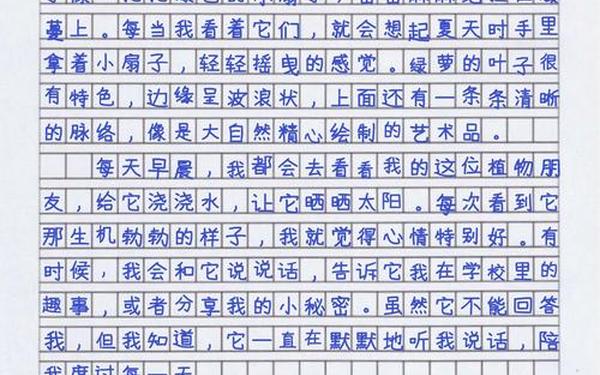 蔓上。每当我看着它们，就会想起夏天时手里
拿着小扇子，轻轻摇曳的感觉。绿萝的叶子很
有特色，边缘呈波浪状，上面还有一条条清晰
的脉络，像是大自然精心绘制的艺术品。
每天早晨，我都会去看看我的这位植物朋
友，给它浇浇水，让它晒晒太阳。每次看到它
那生机勃勃的样子，我就觉得心情特别好。有
时候，我会和它说说话，告诉它我在学校里的
趣事，或者分享我的小秘密。虽然它不能回答
我，但我知道，它一直在默默地听我说话，陪
我度过每一天